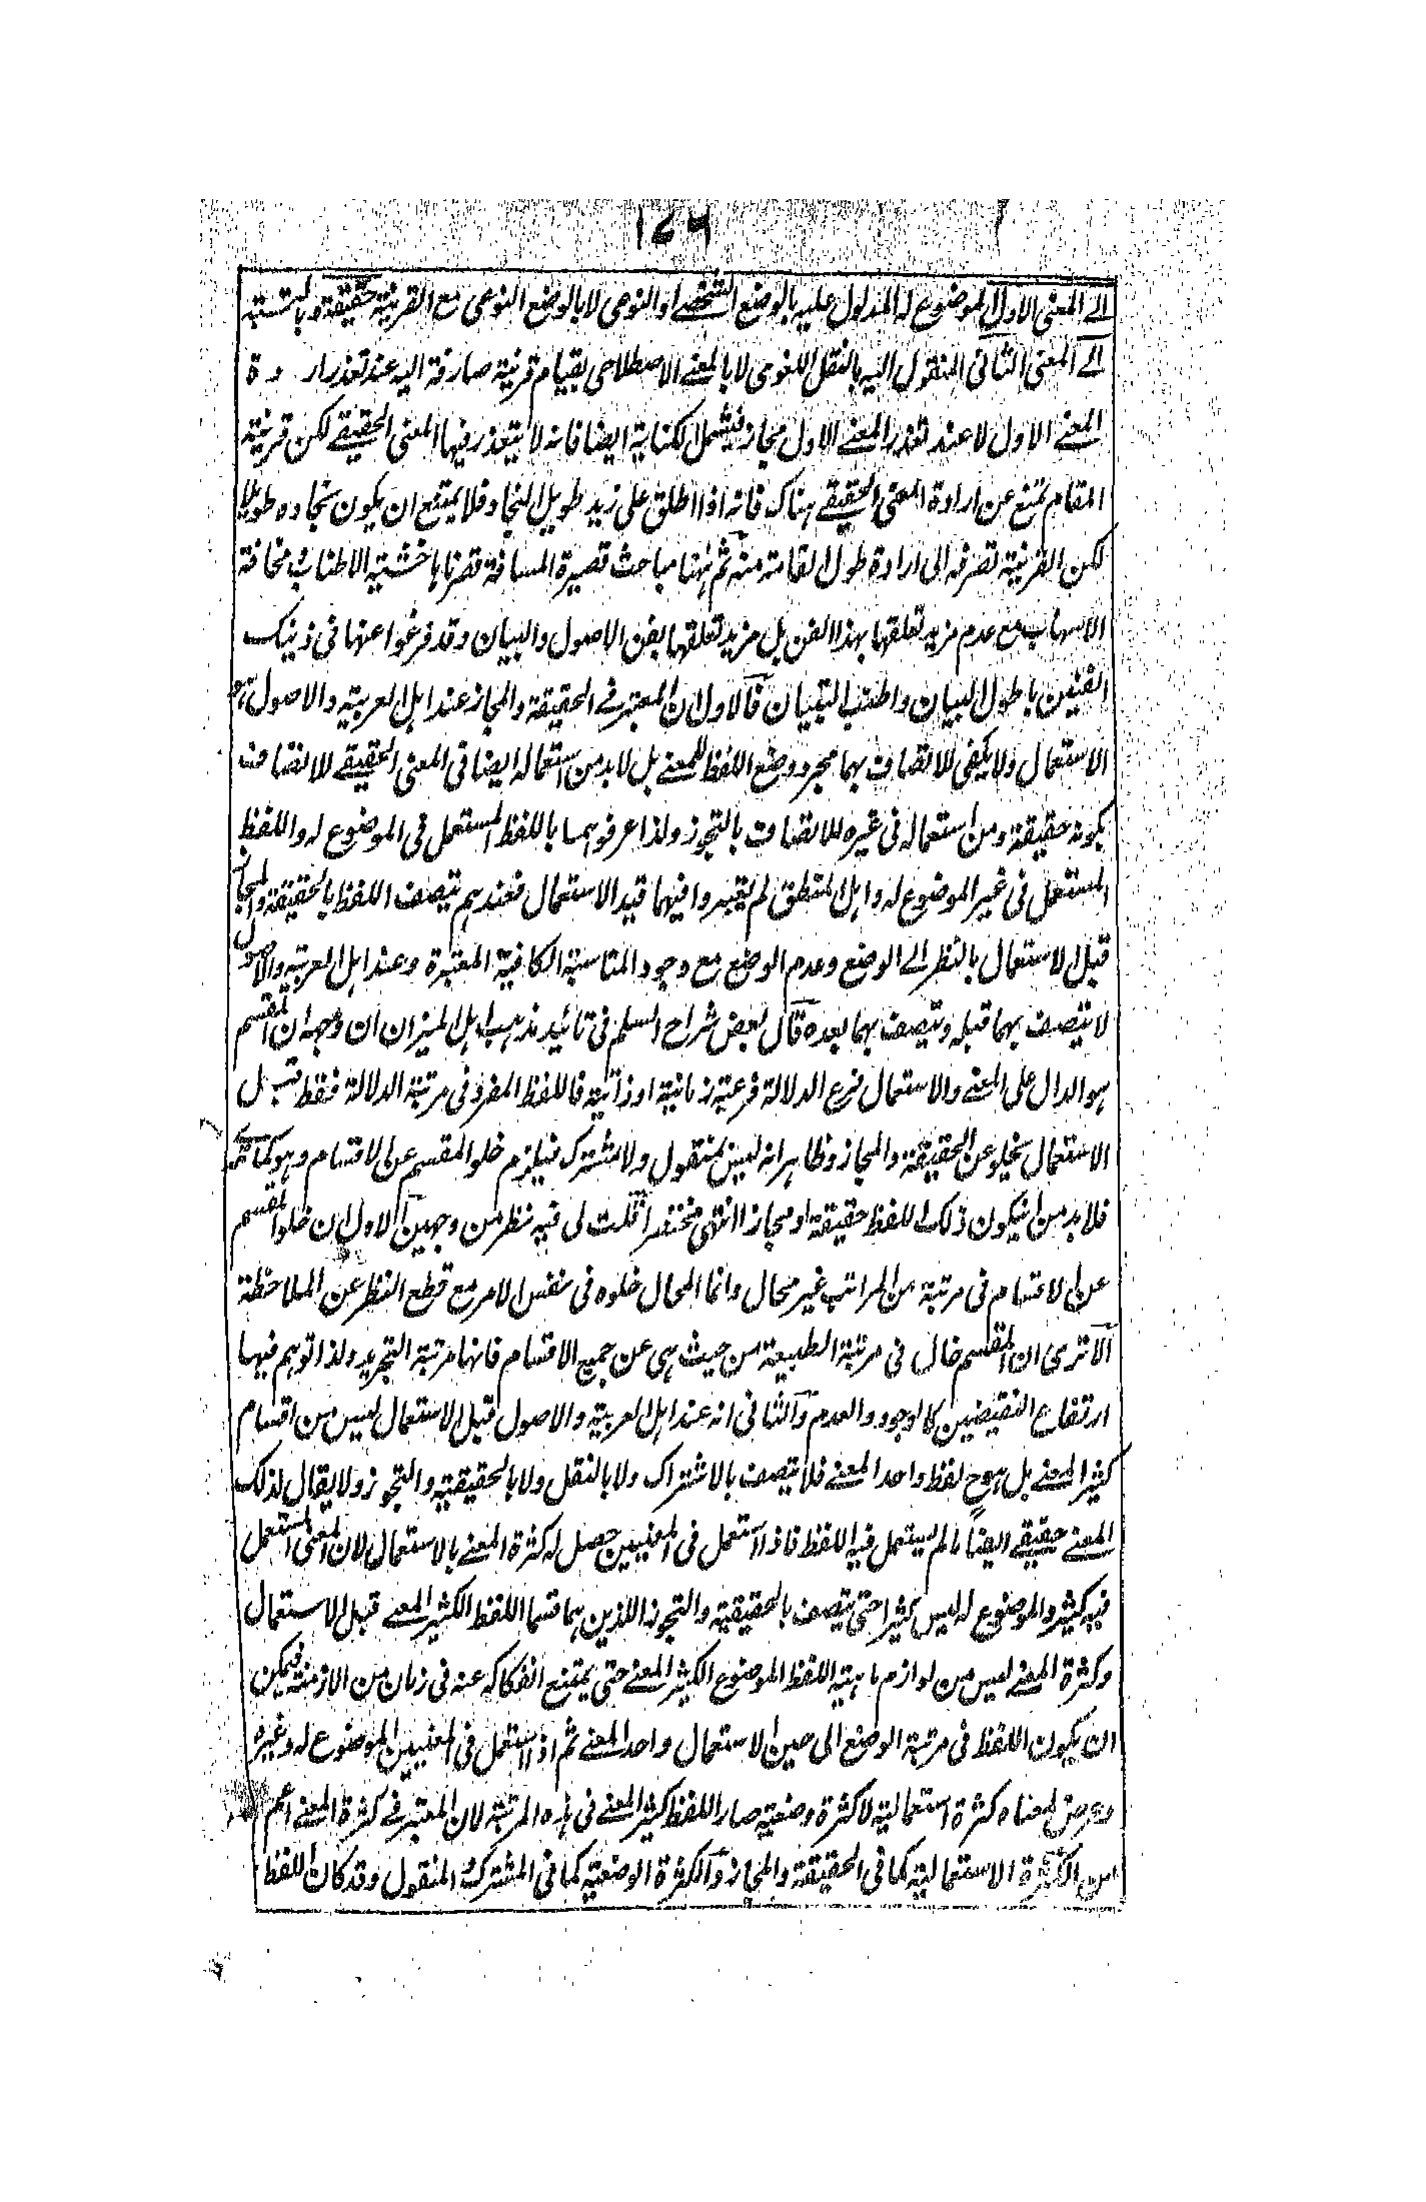 ١٤٦
الے المعنى الاول الموضوع له المدلول عليه بالوضع الشخصے او النوعى لا بالوضع النوعى مع القرينة حقيقة وبالنسبة
الے المعنى الثانى المنقول اليه بالنقل اللغوى لا بالمعنے الاصطلاحى بقيام قرينة صارفة اليه عند تعذر ار دة
المعنے الاول لا عند تعذر المعنے الاول مجاز فيشمل الكناية ايضا فانه لا يتعذر فيها المعنى الحقيقے لكن قرينة
المقام تمنع عن ارادة المعنى الحقيقے هناك فانه اذا اطلق على زيد طويل النجاد فلا يمتنع ان يكون نجاده طويلا
لكن القرينة تصرفه الى ارادة طول القامة منه ثم ههنا مباحث قصيرة المسافة قصرناها خشية الاطناب مخافة
الاسهاب مع عدم مزيد تعلقها بهذا الفن بل مزيد تعلقها بفن الاصول والبيان وقد فرغوا عنها فى ذينك
الفنين باطول البيان واطنب التبيان فالاول ان المعتبر فے الحقيقة والمجاز عند اهل العربية والاصول هو
الاستعمال ولا يكفى للاتصاف بهما مجرد وضع اللفظ للمعنے بل لا بد من استعماله ايضا فى المعنى الحقيقے للاتصاف
بكونه حقيقة ومن استعماله فى غيره للاتصاف بالتجوز ولذا عرفوهما باللفظ المستعمل فى الموضوع له واللفظ
المستعمل فى غير الموضوع له واهل المنطق لم يعتبروا فيهما قيد الاستعمال فعندهم يتصف اللفظ بالحقيقة والمجاز
قبل الاستعمال بالنظر الے الوضع وعدم الوضع مع وجود المناسبة الكافية المعتبرة وعند اهل العربية والاصول
لا يتصف بهما قبله ويتصف بهما بعده قال بعض شراح السلم فى تائيد مذهب اهل الميزان ان وجهه ان المقسم
هو الدال على المعنے والاستعمال فرع الدلالة فرعية زمانية او ذاتية فاللفظ المفرد فى مرتبة الدلالة فقط قبل
الاستعمال يخلو عن الحقيقة والمجاز وظاهر انه ليس بمنقول ولا مشترك فيلزم خلو المقسم عن الاقسام وهو كما ترى
فلا بد من ان يكون ذلك اللفظ حقيقة او مجازا انتهى مختصرا قلت لى فيه نظر من وجهين الاول ان خلو المقسم
عن الاقسام فى مرتبة من المراتب غير محال وانما المحال خلوه فى نفس الامر مع قطع النظر عن الملاحظة
الا ترى ان المقسم خال فى مرتبة الطبيعة من حيث هى عن جميع الاقسام فانها مرتبة التجريد ولذا توهم فيها
ارتفاع النقيضين كالوجود والعدم والثانى انه عند اهل العربية والاصول قبل الاستعمال ليس من اقسام
كثير المعنے بل هو ح لفظ واحد المعنے فلا يتصف بالاشتراك ولا بالنقل ولا بالحقيقية والتجوز ولا يقال لذلك
المعنے حقيقے ايضا ما لم يستعمل فيه اللفظ فاذا استعمل فى المعنيين حصل له كثرة المعنے بالاستعمال لان المعنى المستعمل
فيه كثير والموضوع له ليس بكثير حتى يتصف بالحقيقية والتجوز اللذين هما قسما اللفظ الكثير المعنے قبل الاستعمال
وكثرة المعنے ليس من لوازم ماهية اللفظ الموضوع الكثير المعنے حتى يمتنع انفكاكه عنه فى زمان من الازمنة فيمكن
ان يكون اللفظ فى مرتبة الوضع الى حين الاستعمال واحد المعنے ثم اذا استعمل فى المعنيين الموضوع له وغيره
وعرض لمعناه كثرة استعمالية لا كثرة وضعية صار اللفظ كثير المعنے فى هذه المرتبة لان المعتبر فے كثرة المعنے اعم
من الكثرة الاستعمالية كما فى الحقيقة والمجاز والكثرة الوضعية كما فى المشترك والمنقول وقد كان اللفظ